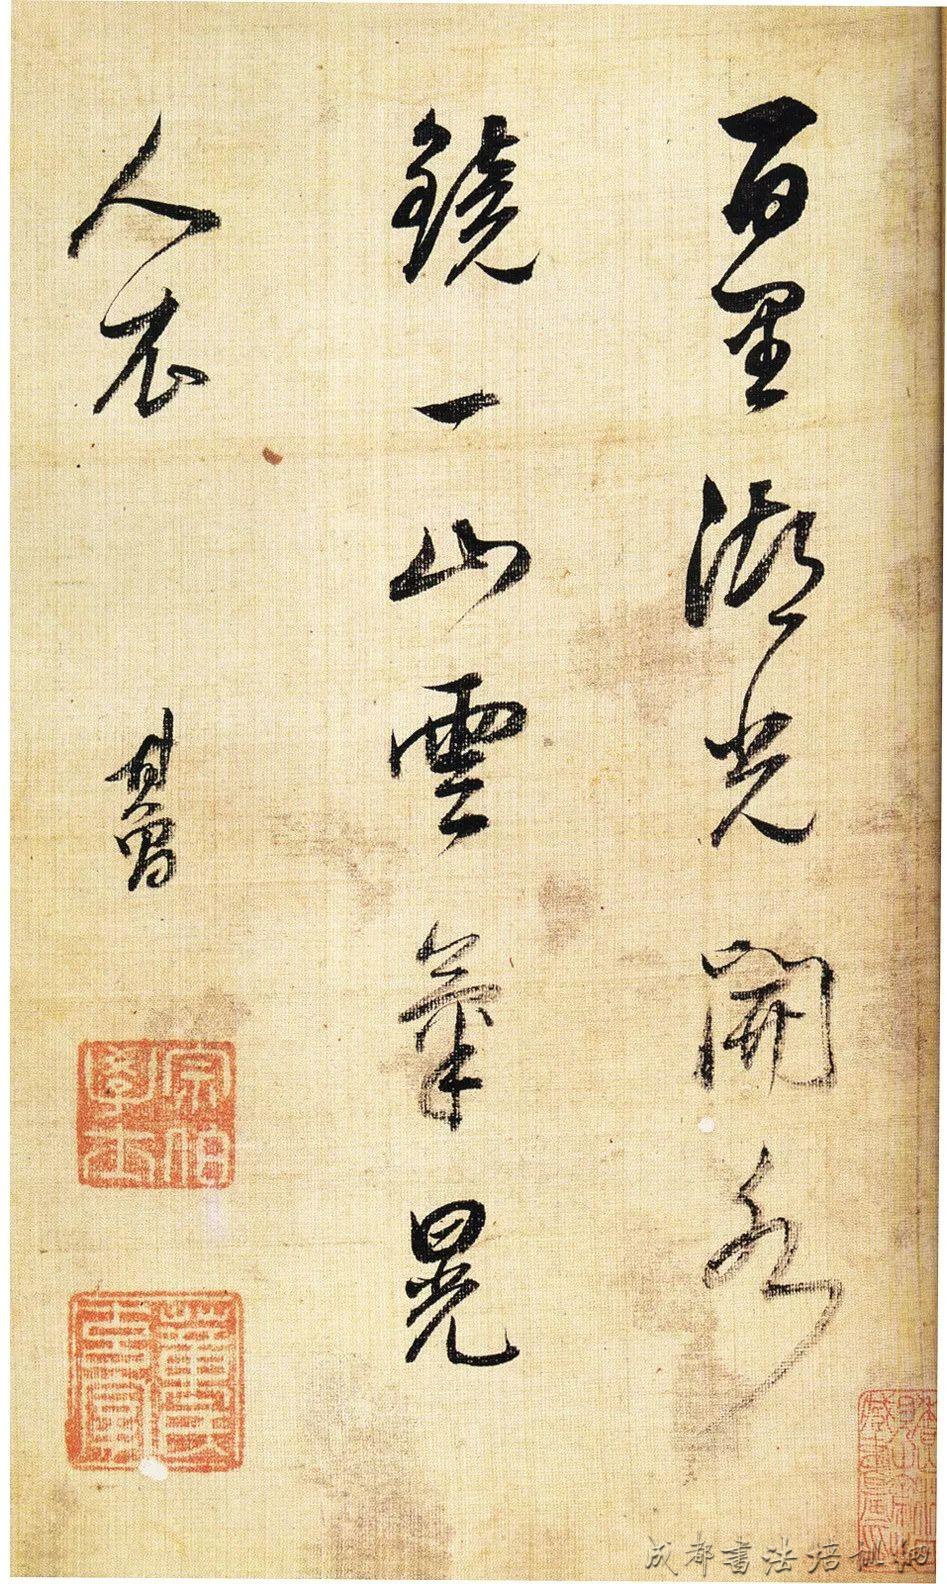 百里湖光開水
鏡一山雲氣晃
人衣
其昌
宗伯學士
董氏玄宰
成都書法培训网